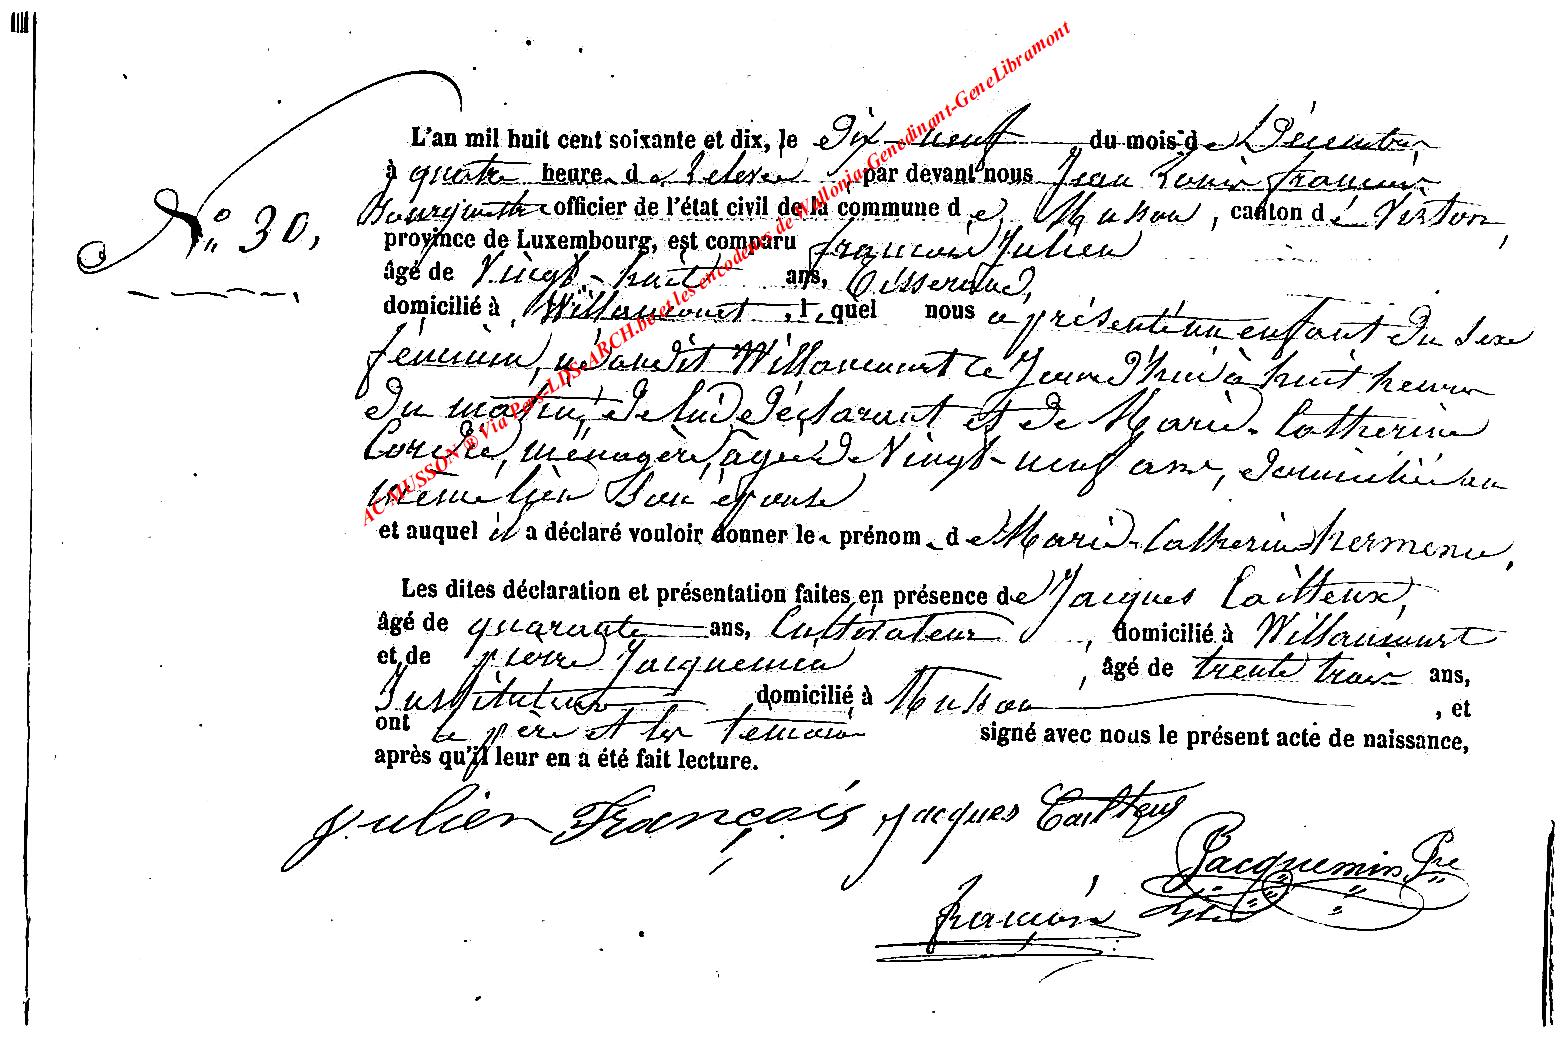 L'an mil huit cent soixante et dix, le Dix-neuf du mois de Décembre
à quatre heure de relevée par devant nous Jean Louis françois
N° 30. officier de l'état civil de la commune de Musson, canton de Virton,
province de Luxembourg, est comparu françois Julien
âgé de Vingt-huit ans, Tisserand,
domicilié à Willancourt, lequel nous a présenté un enfant du sexe
féminin, né audit Willancourt ce Jourd'hui à huit heures
du matin, de lui Déclarant et de Marie-Catherine
ménagère, agée de Vingt-neuf ans, domiciliée au
même lieu Son épouse
et auquel il a déclaré vouloir donner le prénom de Marie-Catherine hermence,
Les dites déclaration et présentation faites en présence de Jacques Tailteux,
âgé de quarante ans, Cultivateur, domicilié à Willancourt
et de pierre Jacquemin, âgé de trente trois ans,
Instituteur domicilié à Musson, et
ont le père et les témoins signé avec nous le présent acte de naissance,
après qu'il leur en a été fait lecture.
Julien François Jacques Tailteux
Jacquemin Pre
françois
AC MUSSON ® Via Pers-LDS-ARCH.be et les encodeurs de Wallonia-Genedinant-GeneLibramont